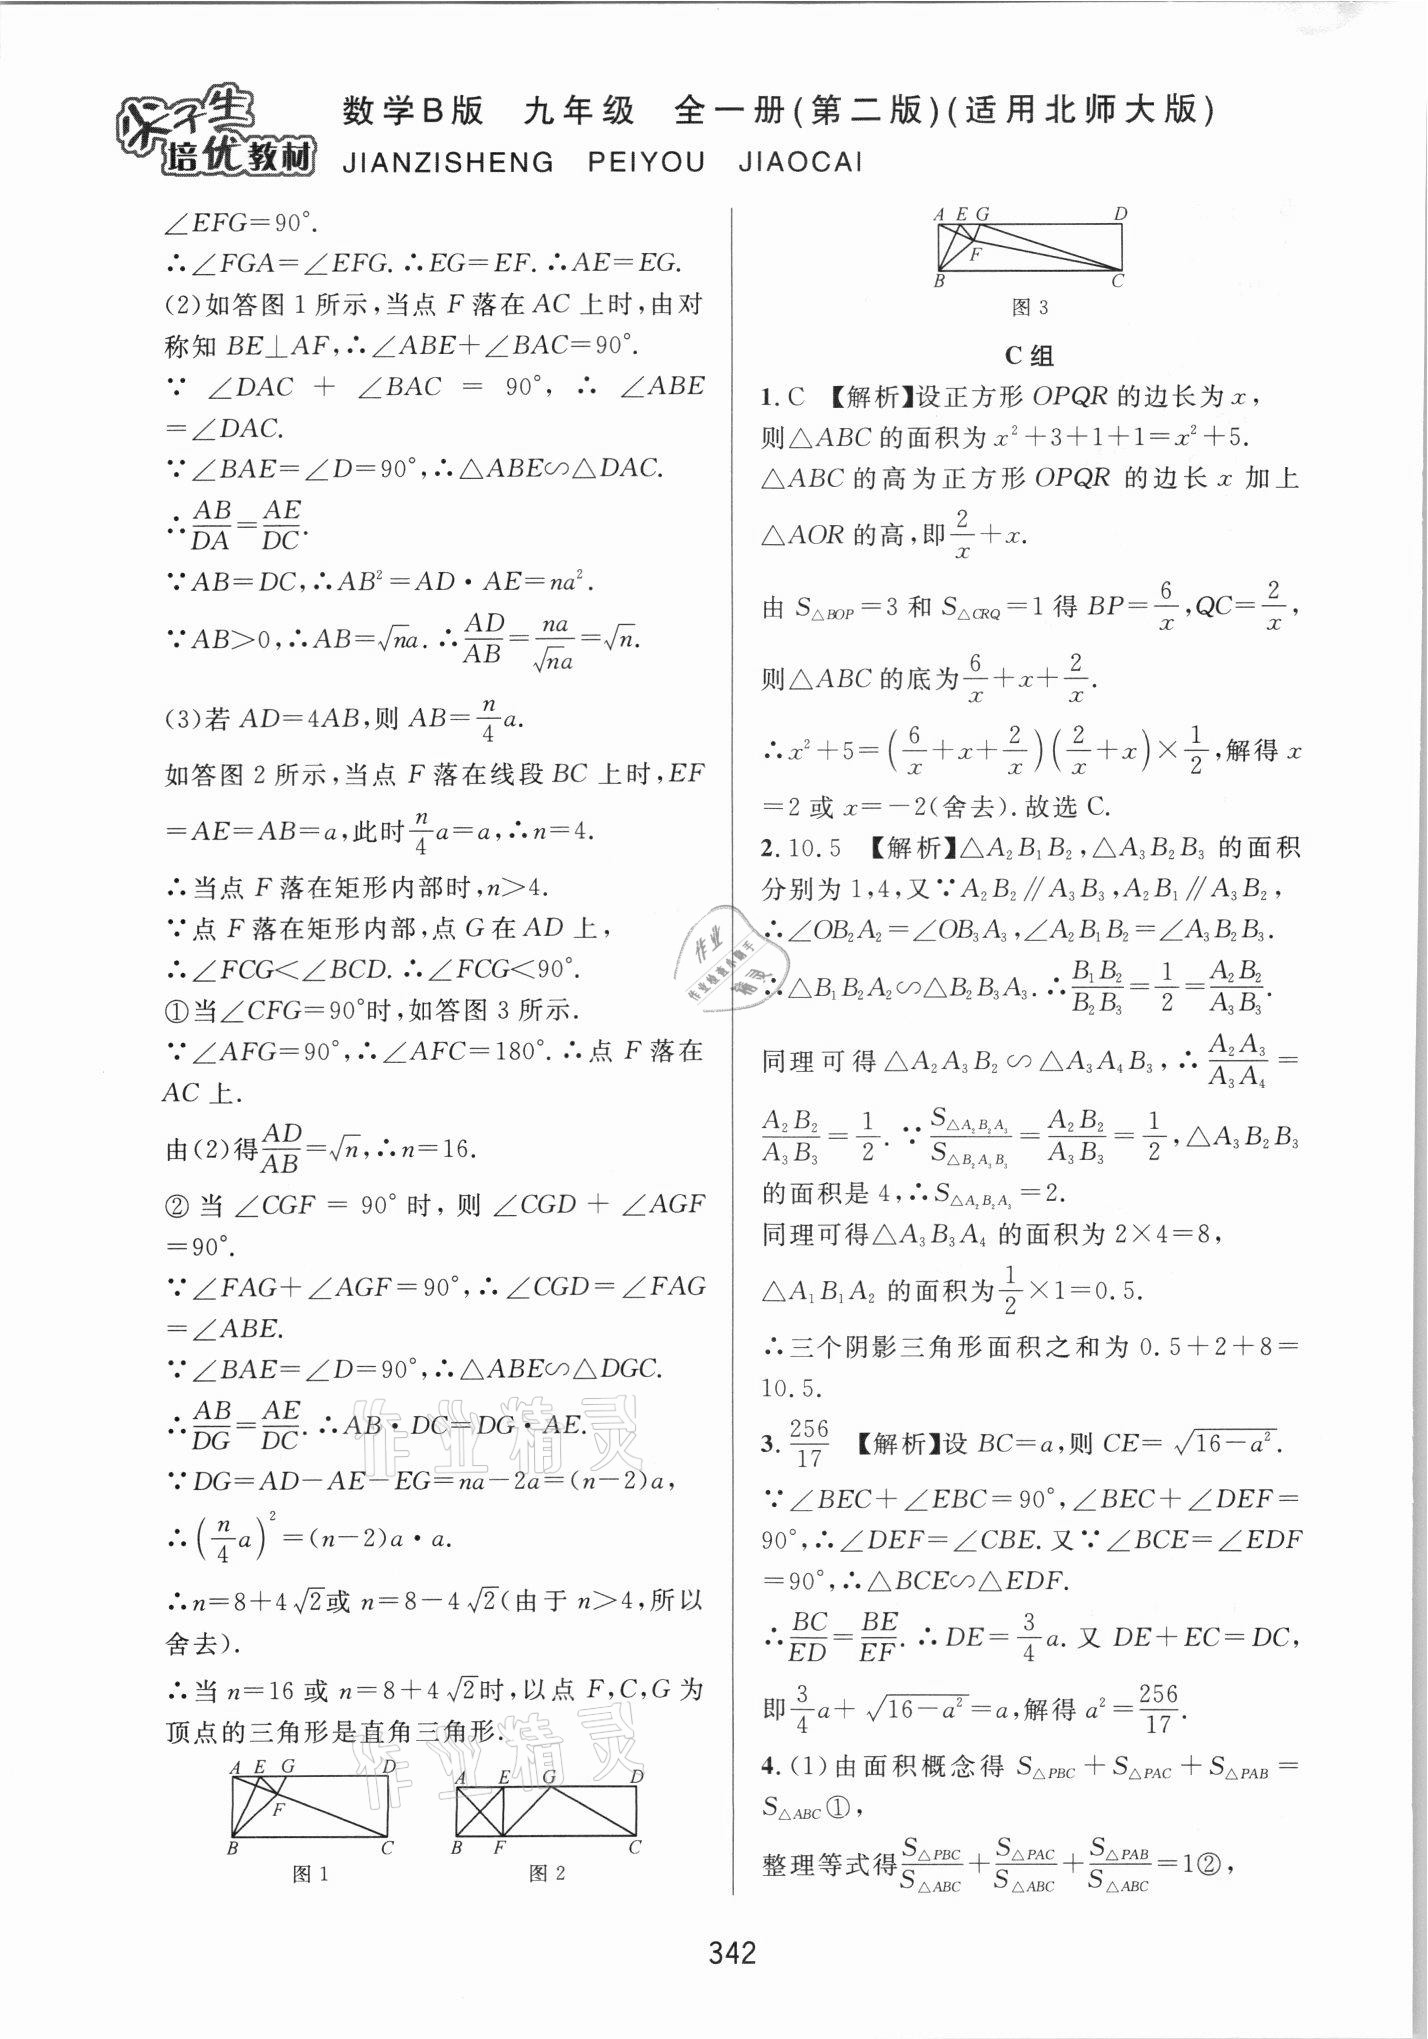 尖子生
培优教材
数学B版 九年级 全一册(第二版)(适用北师大版)
JIANZISHENG PEIYOU JIAOCAI
∠EFG=90°.
∴∠FGA=∠EFG.∴EG=EF.∴AE=EG.
(2)如答图1所示,当点F落在AC上时,由对
称知BE⊥AF,∴∠ABE+∠BAC=90°.
∵ ∠DAC + ∠BAC = 90°, ∴ ∠ABE
=∠DAC.
∵∠BAE=∠D=90°,∴△ABE∽△DAC.
∴AB/DA=AE/DC.
∵AB=DC,∴AB²=AD·AE=na².
∵AB>0,∴AB=√na.∴AD/AB=na/√na=√n.
(3)若AD=4AB,则AB=n/4a.
如答图2所示,当点F落在线段BC上时,EF
=AE=AB=a,此时n/4a=a,∴n=4.
∴当点F落在矩形内部时,n>4.
∵点F落在矩形内部,点G在AD上,
∴∠FCG<∠BCD.∴∠FCG<90°.
①当∠CFG=90°时,如答图3所示.
∵∠AFG=90°,∴∠AFC=180°.∴点F落在
AC上.
由(2)得AD/AB=√n,∴n=16.
②当∠CGF=90°时,则∠CGD+∠AGF
=90°.
∵∠FAG+∠AGF=90°,∴∠CGD=∠FAG
=∠ABE.
∵∠BAE=∠D=90°,∴△ABE∽△DGC.
∴AB/DG=AE/DC.∴AB·DC=DG·AE.
∵DG=AD-AE-EG=na-2a=(n-2)a,
∴(n/4a)²=(n-2)a·a.
∴n=8+4√2或n=8-4√2(由于n>4,所以
舍去).
∴当n=16或n=8+4√2时,以点F,C,G为
顶点的三角形是直角三角形.
A E G D
F
B C
图1
A E G D
B F C
图2
A E G D
F
B C
图3
C组
1.C 【解析】设正方形OPQR的边长为x,
则△ABC的面积为x²+3+1+1=x²+5.
△ABC的高为正方形OPQR的边长x加上
△AOR的高,即2/x+x.
由S△BOP=3和S△CRQ=1得BP=6/x,QC=2/x,
则△ABC的底为6/x+x+2/x.
∴x²+5=(6/x+x+2/x)(2/x+x)×1/2,解得x
=2或x=-2(舍去).故选C.
2.10.5 【解析】△A₂B₁B₂,△A₃B₂B₃的面积
分别为1,4,又∵A₂B₂∥A₃B₃,A₂B₁∥A₃B₂,
∴∠OB₂A₂=∠OB₃A₃,∠A₂B₁B₂=∠A₃B₂B₃.
∴△B₁B₂A₂∽△B₂B₃A₃.∴B₁B₂/B₂B₃=1/2=A₂B₂/A₃B₃.
同理可得△A₂A₃B₂∽△A₃A₄B₃,∴A₂A₃/A₃A₄=
A₂B₂/A₃B₃=1/2.∵S△A₂B₂A₃/S△B₂A₃B₃=A₂B₂/A₃B₃=1/2,△A₃B₂B₃
的面积是4,∴S△A₂B₂A₃=2.
同理可得△A₃B₃A₄的面积为2×4=8,
△A₁B₁A₂的面积为1/2×1=0.5.
∴三个阴影三角形面积之和为0.5+2+8=
10.5.
3.256/17 【解析】设BC=a,则CE=√(16-a²).
∵∠BEC+∠EBC=90°,∠BEC+∠DEF=
90°,∴∠DEF=∠CBE.又∵∠BCE=∠EDF
=90°,∴△BCE∽△EDF.
∴BC/ED=BE/EF.∴DE=3/4a.又DE+EC=DC,
即3/4a+√(16-a²)=a,解得a²=256/17.
4.(1)由面积概念得S△PBC+S△PAC+S△PAB=
S△ABC①,
整理等式得S△PBC/S△ABC+S△PAC/S△ABC+S△PAB/S△ABC=1②,
342
作业精灵
作业精灵
作业
作业检查小助手
精灵